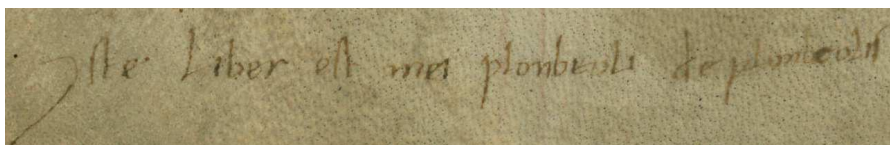 Iste Liber est mei plonbeoli de plumbeolis